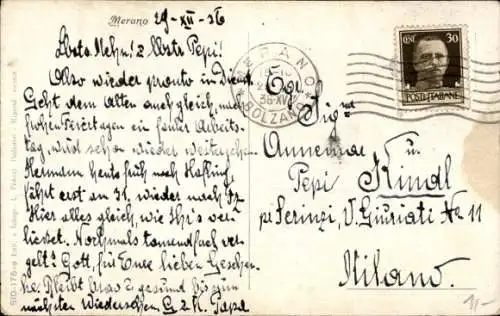 Merano 29-XII-36
Lbste Nehn! & Lbstr Pepi!
Also wieder pronto in Dienst.
Geht dem Alten auch gleich, nach
frohen Feiertagen ein fester Arbeits-
tag wird schon wieder weitergehen.
Hermann heute früh nach Hafling,
fährt erst an 31. wieder nach
Hier alles gleich, wie Ihr's ver-
liesset. Nochmals tausendfach ver-
gelt's Gott, für Eure lieben Geschen-
ke. Bleibt brav & gesund bis zum
nächsten Wiedersehen. G & K Papa
MERANO
36-XV
BOLZANO
30
POSTE ITALIANE
Egr. Sigri
Annemar u
Pepi Kindl
per Serinzi, V. Giuriati No 11
Milano.